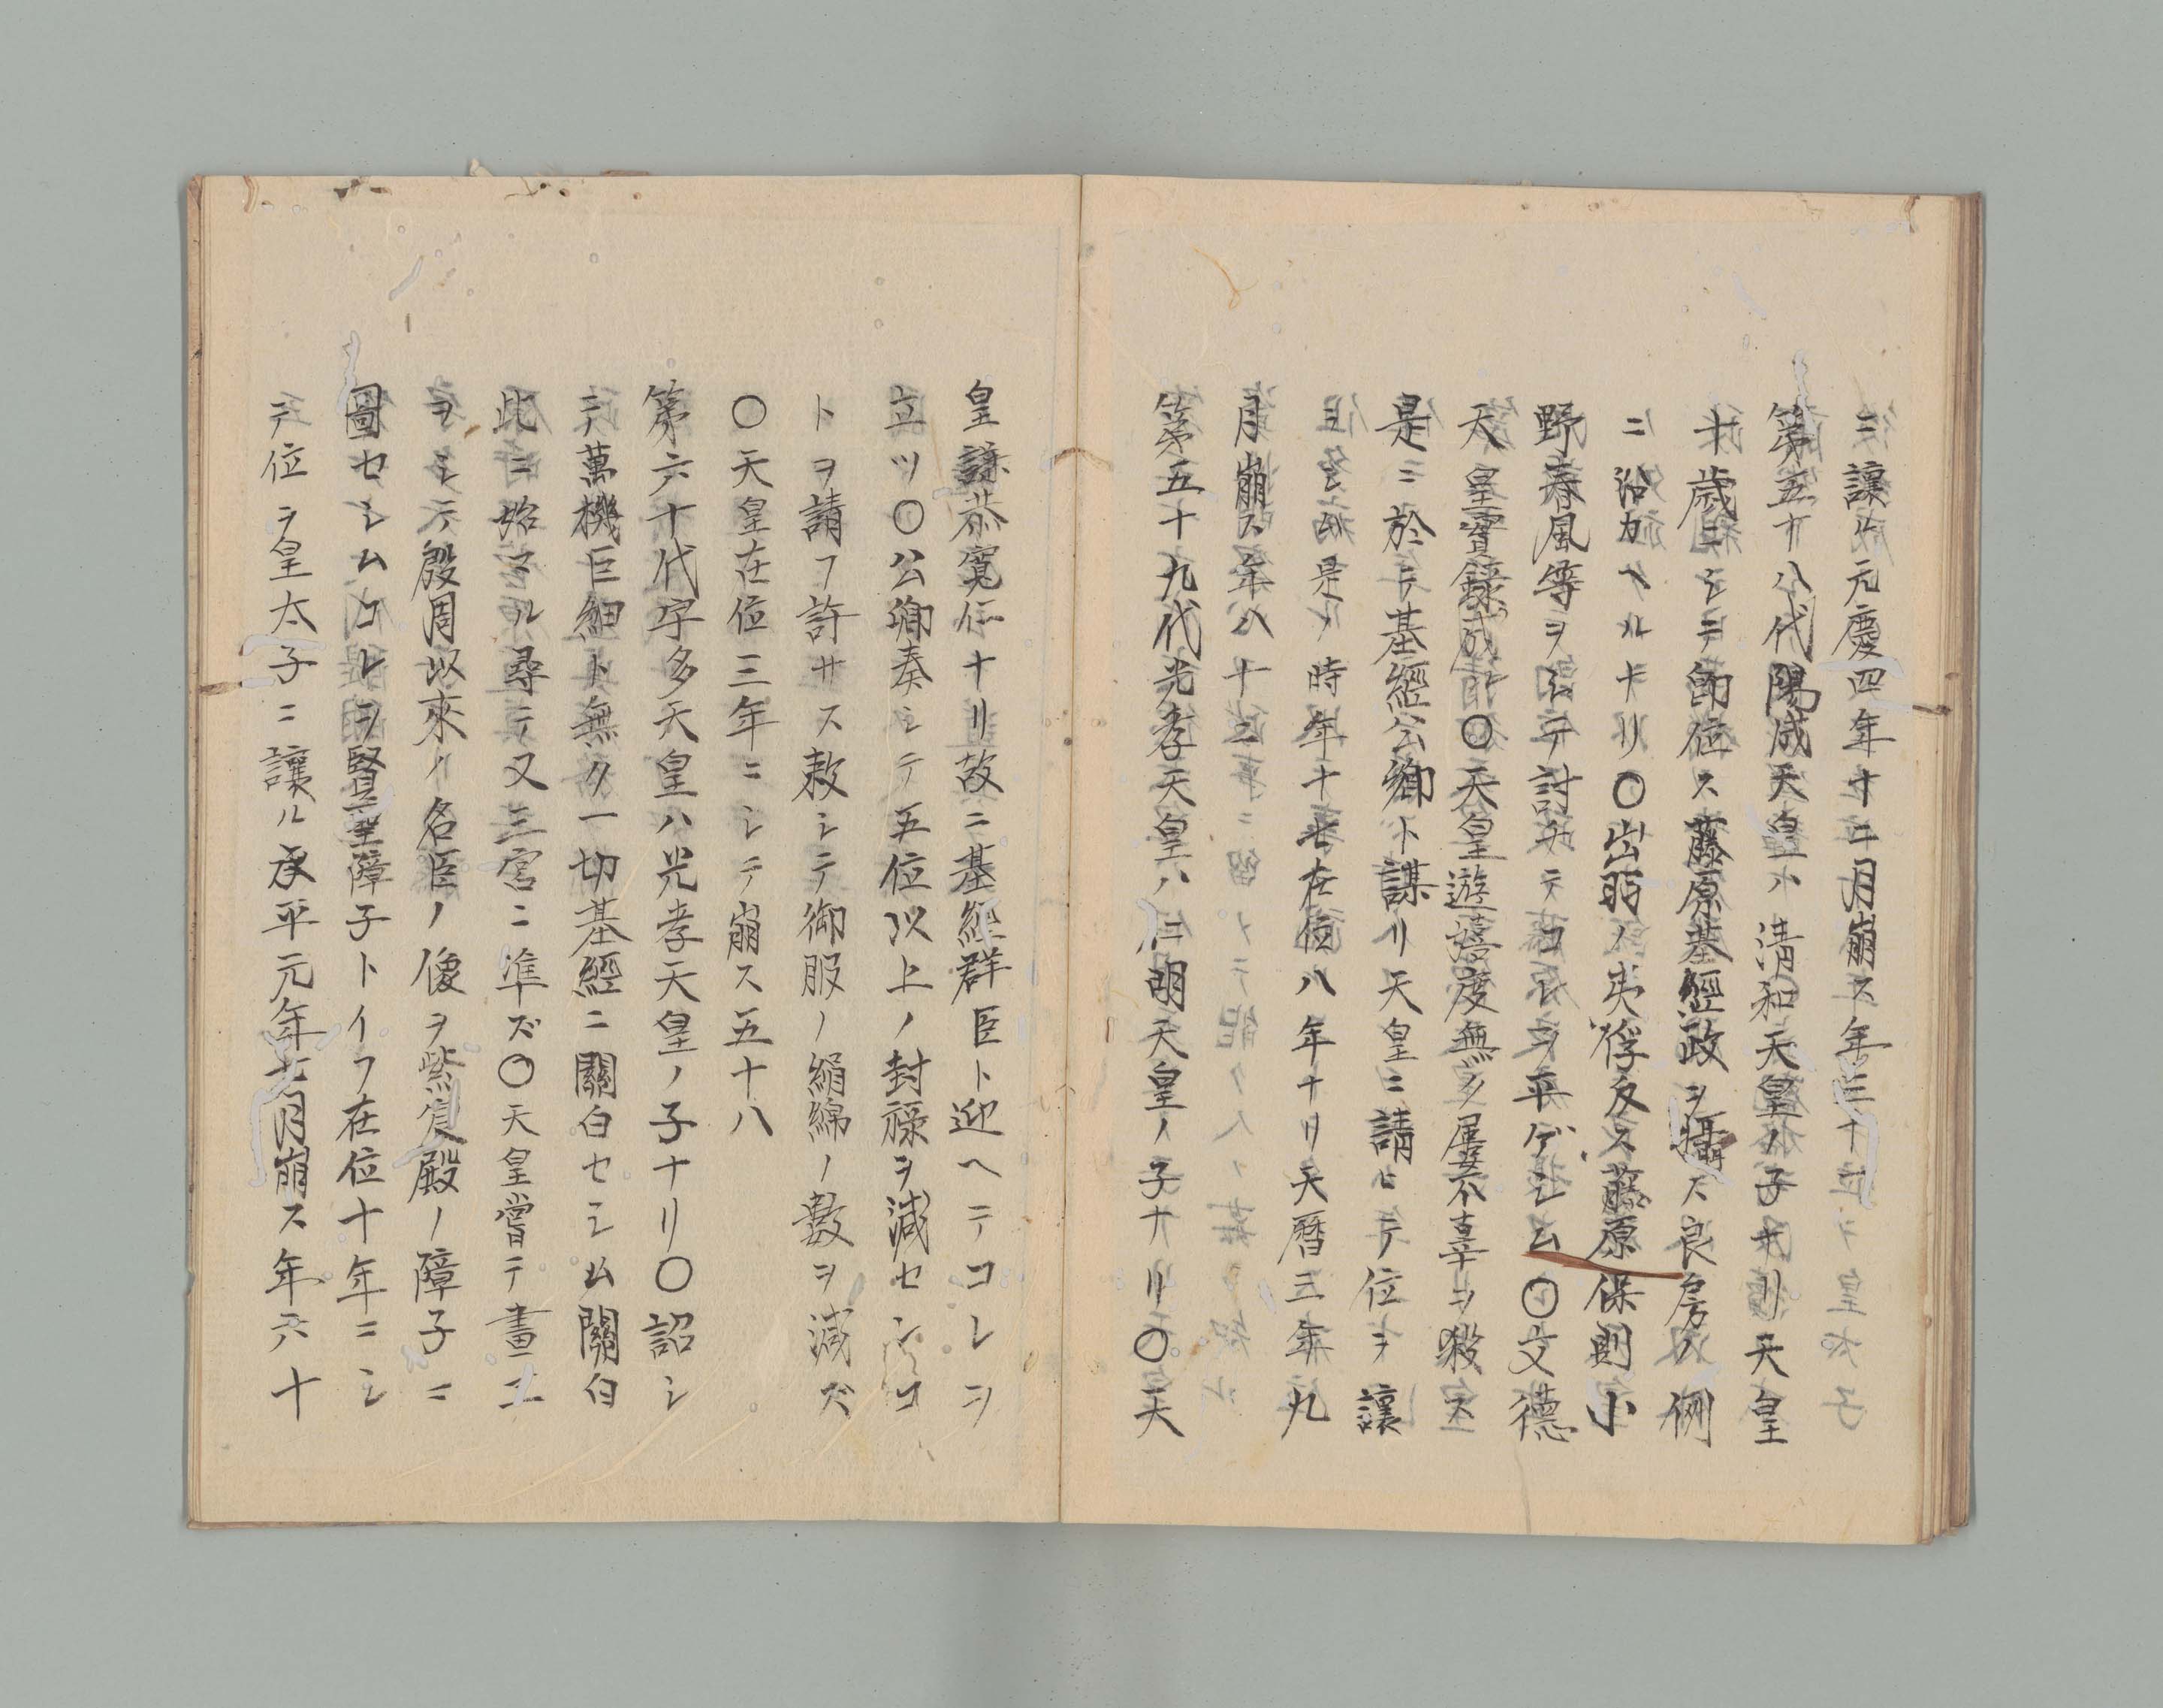 ニ讓ル元慶四年十二月崩ス年三十一
第五十八代陽成天皇ハ清和天皇ノ子ナリ天皇
十歳ニシテ即位ス藤原基經政ヲ攝ス良房ノ例
ニ沿カヘルナリ〇出羽ノ夷俘反ス藤原保則小
野春風等ヲシテ討チテコレヲ平ゲシム〇文德
天皇實錄成ル〇天皇遊嬉度無ク屢不辜ヲ殺ス
是ニ於テ基經公卿ト謀リ天皇ニ請ヒテ位ヲ讓
ラシム是ノ時年十七在位八年ナリ天曆三年九
月崩ス年八十二
第五十九代光孝天皇ハ仁明天皇ノ子ナリ〇天
皇謙恭寬仁ナリ故ニ基經群臣ト迎ヘテコレヲ
立ツ〇公卿奏シテ五位以上ノ封祿ヲ減センコ
トヲ請フ許サス敕シテ御服ノ絹綿ノ數ヲ減ズ
〇天皇在位三年ニシテ崩ス五十八
第六十代宇多天皇ハ光孝天皇ノ子ナリ〇詔シ
テ萬機巨細ト無ク一切基經ニ關白セシム關白
此ニ始マル尋テ又三宮ニ準ズ〇天皇嘗テ畫工
ヲシテ殷周以來ノ名臣ノ像ヲ紫宸殿ノ障子ニ
圖セシムコレヲ賢聖障子トイフ在位十年ニシ
テ位ヲ皇太子ニ讓ル承平元年七月崩ス年六十